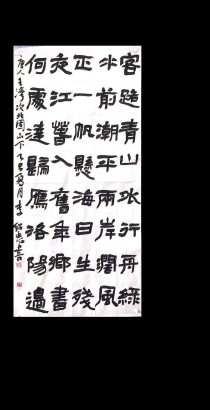 客路青山外行舟綠
水前潮平兩岸闊風
正一帆懸海日生殘
夜江春入舊年鄉書
何處達歸雁洛陽邊
唐人王灣次北固山下乙巳夏月李忠書